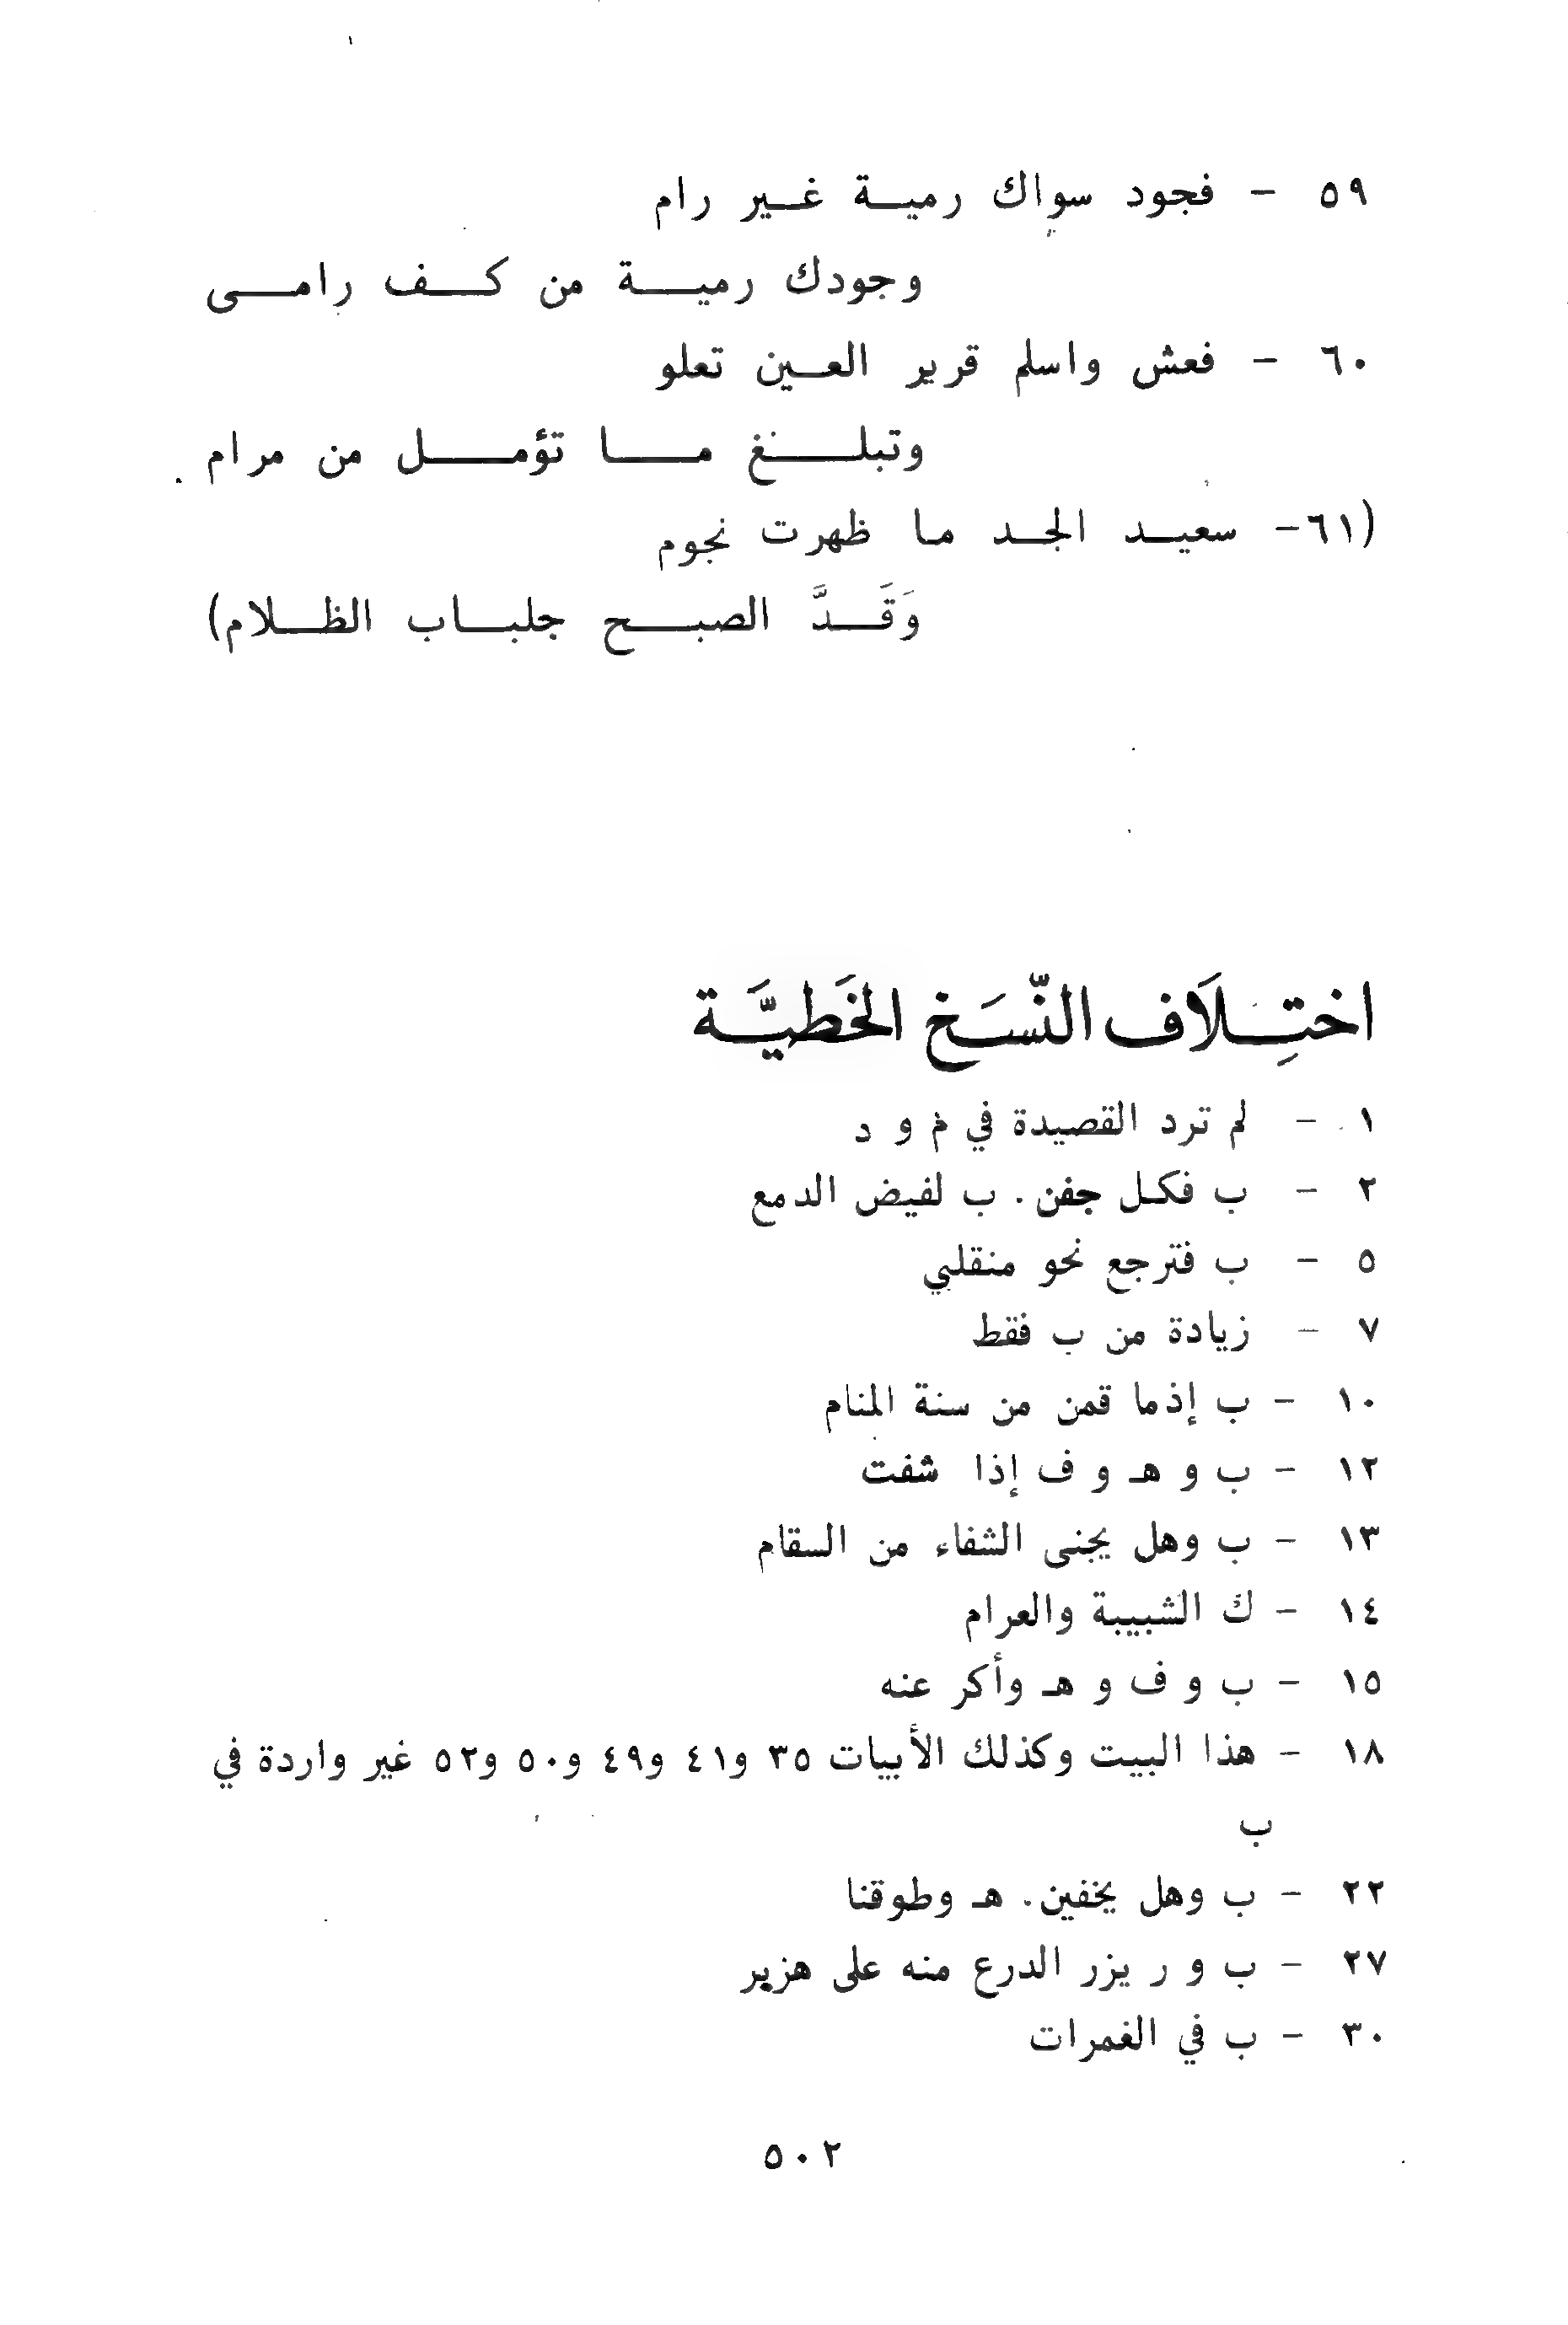 ٥٩ - فجود سواك رمية غير رام
وجودك رمية من كف رامى
٦٠ - فعش واسلم قرير العين تعلو
وتبلغ ما تؤمل من مرام
(٦١- سعيد الجد ما ظهرت نجوم
وَقَدَّ الصبح جلباب الظلام)
اختِلَاف النّسَخ الخَطيَّة
١ - لم ترد القصيدة في م و د
٢ - ب فكل جفن . ب لفيض الدمع
٥ - ب فترجع نحو منقلبي
٧ - زيادة من ب فقط
١٠ - ب إذما قمن من سنة المنام
١٢ - ب و هـ و ف إذا شفت
١٣ - ب وهل يجنى الشفاء من السقام
١٤ - ك الشبيبة والعرام
١٥ - ب و ف و هـ وأكر عنه
١٨ - هذا البيت وكذلك الأبيات ٣٥ و٤١ و٤٩ و٥٠ و٥٢ غير واردة في
ب
٢٢ - ب وهل يخفين . هـ وطوقنا
٢٧ - ب و ر يزر الدرع منه على هزبر
٣٠ - ب في الغمرات
٥٠٢